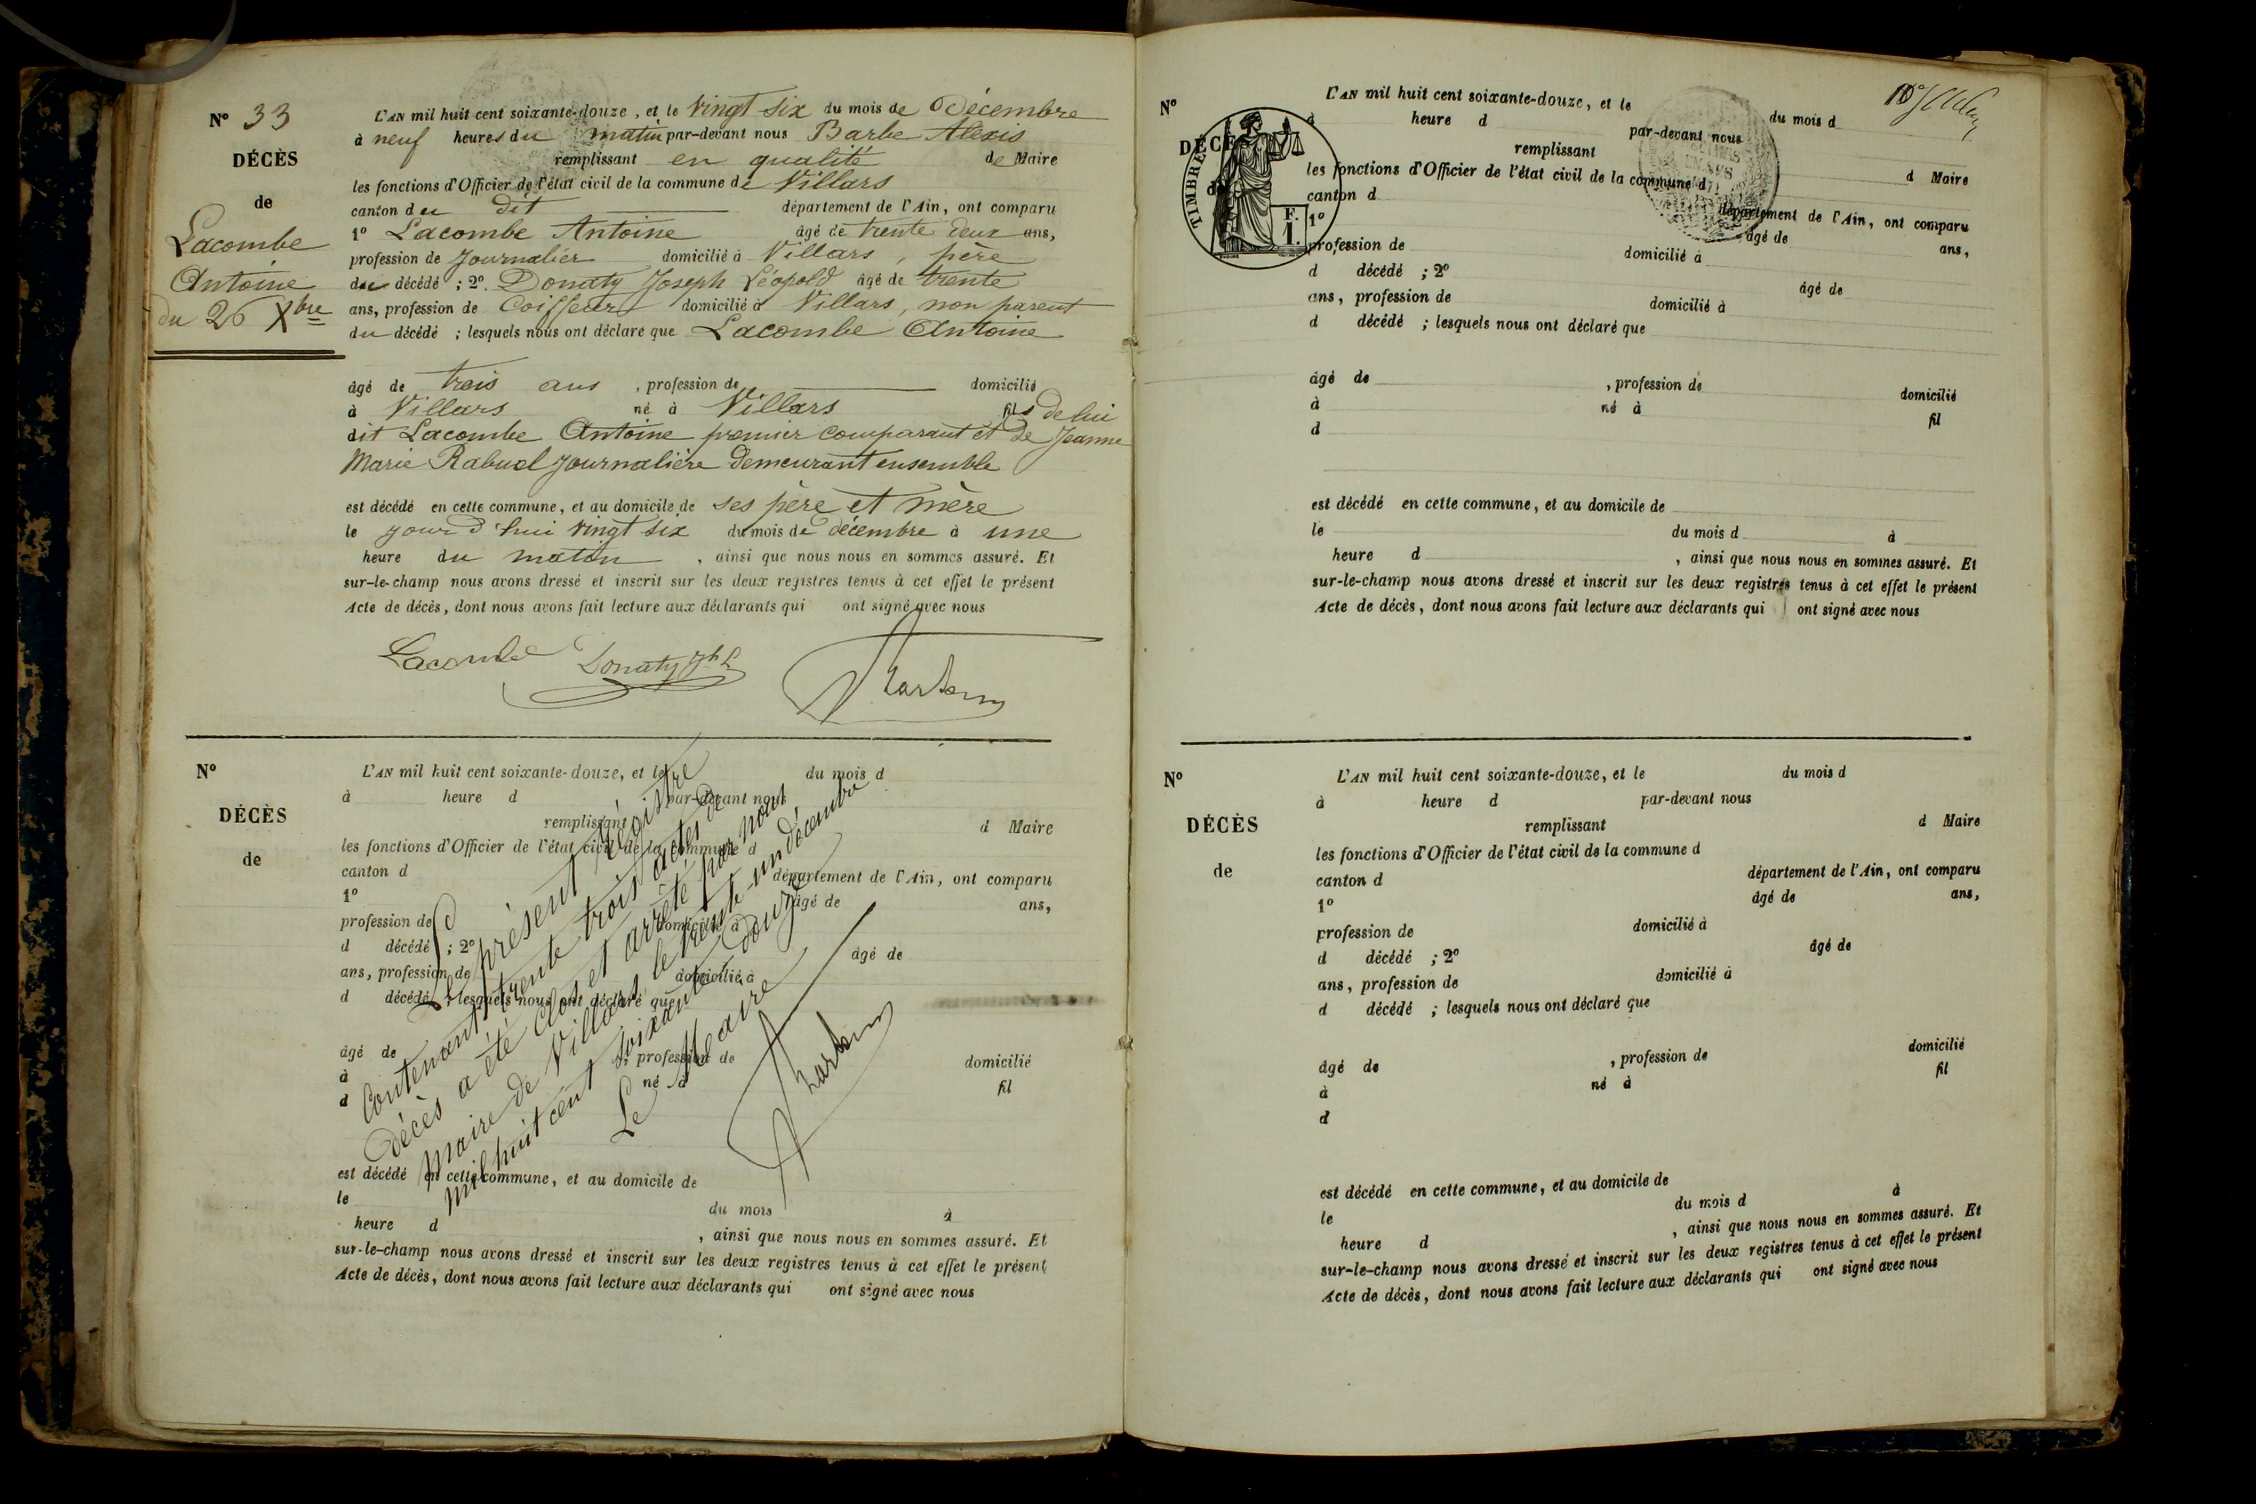 N° 33
DÉCÈS
de
Lacombe
Antoine
du 26 Xbre
L'AN mil huit cent soixante-douze, et le vingt six du mois de Décembre
à neuf heures du matin par-devant nous Barbe Alexis
remplissant en qualité de Maire
les fonctions d'Officier de l'état civil de la commune de Villars
canton du dit département de l'Ain, ont comparu
1° Lacombe Antoine âgé de trente deux ans,
profession de Journalier domicilié à Villars, père
du décédé ; 2°. Donaty Joseph Léopold âgé de trente
ans, profession de Coiffeur domicilié à Villars, non parent
du décédé ; lesquels nous ont déclaré que Lacombe Antoine
âgé de trois ans , profession de domicilié
à Villars né à Villars fils de lui
dit Lacombe Antoine premier comparant et de Jeanne
Marie Rabuel Journalière demeurant ensemble
est décédé en cette commune, et au domicile de ses père et mère
le jourd'hui vingt six du mois de décembre à une
heure du matin , ainsi que nous nous en sommes assuré. Et
sur-le-champ nous avons dressé et inscrit sur les deux registres tenus à cet effet le présent
Acte de décès, dont nous avons fait lecture aux déclarants qui ont signé avec nous
Lacombe Donaty Jh L
N°
DÉCÈS
de
L'AN mil huit cent soixante-douze, et le du mois d
à heure d par-devant nous
remplissant d Maire
les fonctions d'Officier de l'état civil de la commune d
canton d département de l'Ain, ont comparu
1° âgé de ans,
profession de domicilié à
d décédé ; 2° âgé de
ans, profession de domicilié à
d décédé ; lesquels nous ont déclaré que
âgé de , profession de domicilié
à né à fil
d
est décédé en cette commune, et au domicile de
le du mois à
heure d , ainsi que nous nous en sommes assuré. Et
sur-le-champ nous avons dressé et inscrit sur les deux registres tenus à cet effet le présent
Acte de décès, dont nous avons fait lecture aux déclarants qui ont signé avec nous
Le présent régistre
Contenant trente trois actes de
décès a été clos et arrêté par nous
maire de Villars, le trente-un décembre
mil huit cent soixante douze
Le Maire
N°
DÉCÈS
de
TIMBRE
F.
I.
L'AN mil huit cent soixante-douze, et le du mois d
à heure d par-devant nous
remplissant d Maire
les fonctions d'Officier de l'état civil de la commune d
canton d département de l'Ain, ont comparu
1° âgé de ans,
profession de domicilié à
d décédé ; 2° âgé de
ans, profession de domicilié à
d décédé ; lesquels nous ont déclaré que
âgé de , profession de domicilié
à né à fil
d
est décédé en cette commune, et au domicile de
le du mois d à
heure d , ainsi que nous nous en sommes assuré. Et
sur-le-champ nous avons dressé et inscrit sur les deux registres tenus à cet effet le présent
Acte de décès, dont nous avons fait lecture aux déclarants qui ont signé avec nous
N°
DÉCÈS
de
L'AN mil huit cent soixante-douze, et le du mois d
à heure d par-devant nous
remplissant d Maire
les fonctions d'Officier de l'état civil de la commune d
canton d département de l'Ain, ont comparu
1° âgé de ans,
profession de domicilié à
d décédé ; 2° âgé de
ans, profession de domicilié à
d décédé ; lesquels nous ont déclaré que
âgé de , profession de domicilié
à né à fil
d
est décédé en cette commune, et au domicile de
le du mois d à
heure d , ainsi que nous nous en sommes assuré. Et
sur-le-champ nous avons dressé et inscrit sur les deux registres tenus à cet effet le présent
Acte de décès, dont nous avons fait lecture aux déclarants qui ont signé avec nous